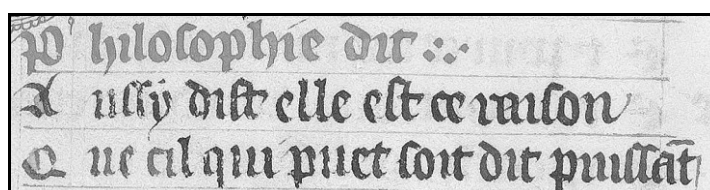 P hilosophie dit
A ussy dist elle est ce raison
Q ue cil qui puet soit dit puissāt